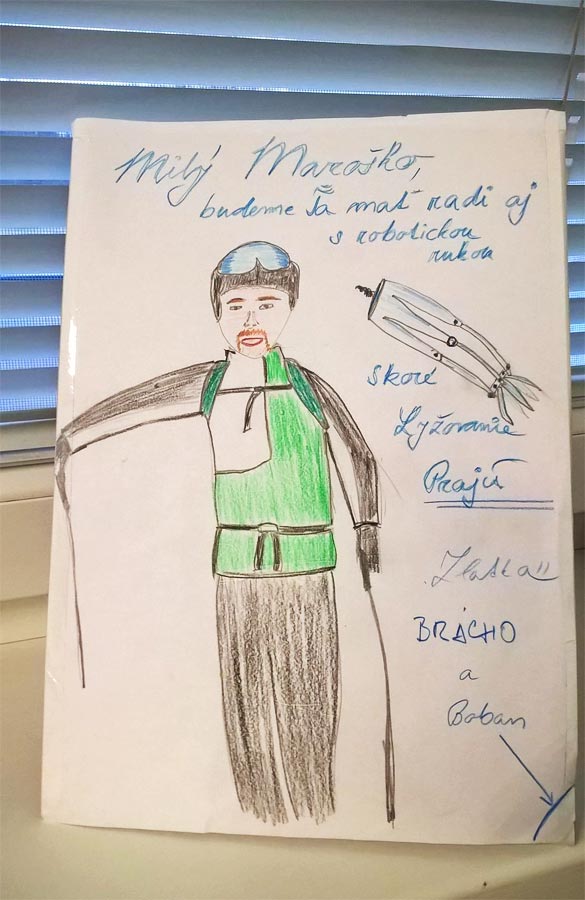 Milý Maroško,
budeme Ťa mať radi aj
s robotickou
rukou
skoré
Lyžovanie
Prajú
"Zlatka"
BRÁCHO
a
Boban